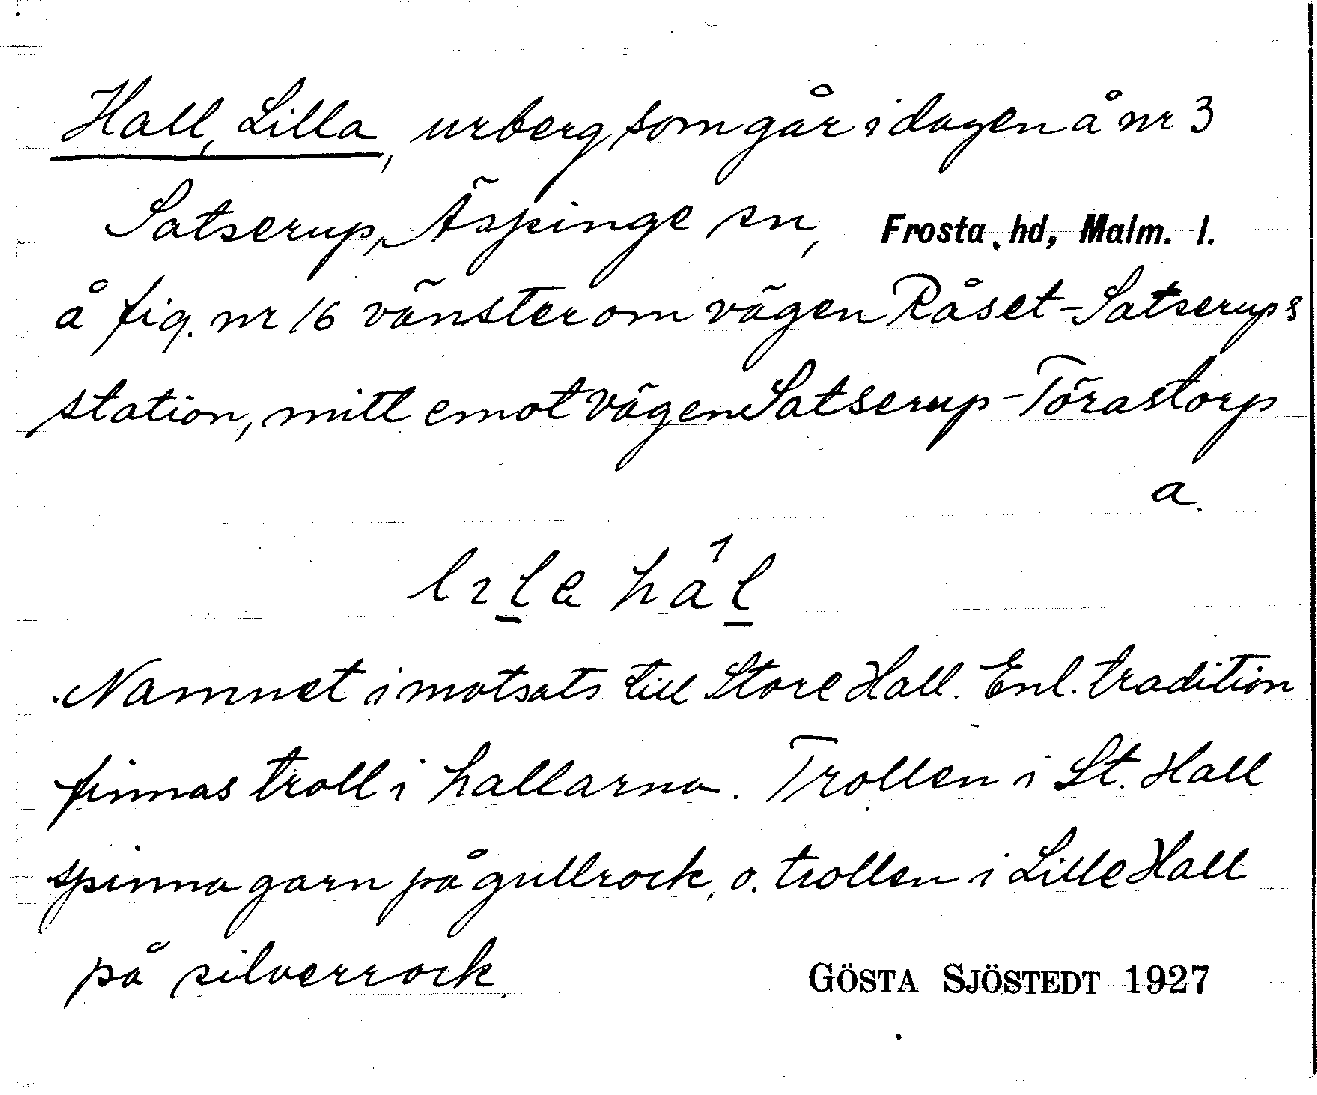 Hall, Lilla, urberg som går i dagen å nr 3
Satserup, Äspinge sn, Frosta hd, Malm. l.
å fig. nr 16 vänster om vägen Råset-Satserups
station, mitt emot vägen Satserup-Törastorp
a.
lɩlɐ hál
Namnet i motsats till Store Hall. Enl. tradition
finnas troll i hallarna. Trollen i St. Hall
spinna garn på gullrock, o. trollen i Lille Hall
på silverrock.
GÖSTA SJÖSTEDT 1927